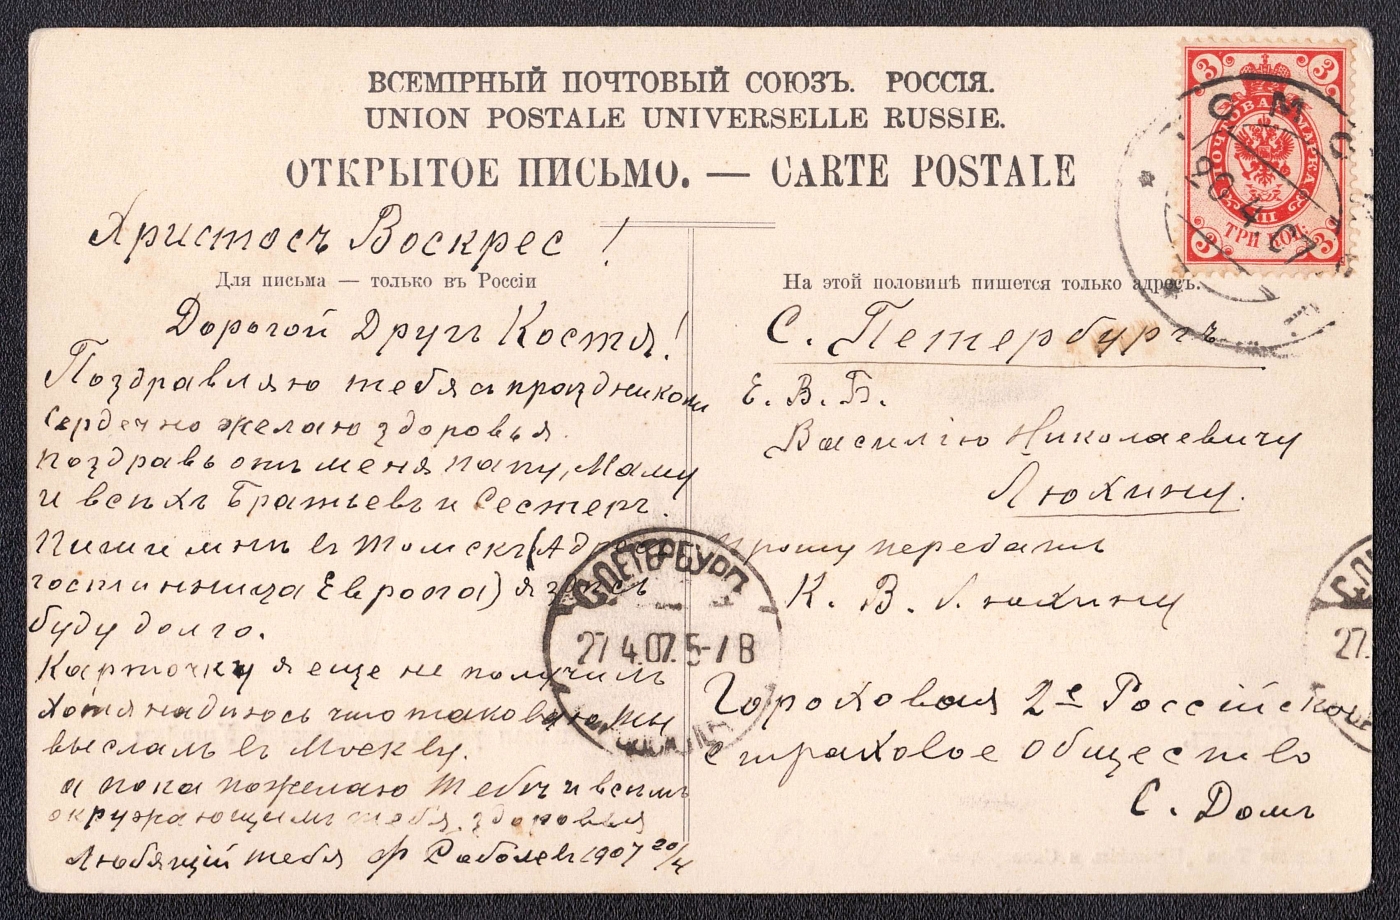 ВСЕМІРНЫЙ ПОЧТОВЫЙ СОЮЗЪ. РОССІЯ.
UNION POSTALE UNIVERSELLE RUSSIE.
ОТКРЫТОЕ ПИСЬМО. — CARTE POSTALE
3 3
ПОЧТОВАЯ МАРКА
ТРИ КОП.
3 3
20 4 07
Христосъ Воскрес !
Для письма — только въ Россіи
Дорогой Другъ Костя!
Поздравляю тебя съ праздником
Сердечно желаю здоровья.
поздравь отъ меня папу, Маму
и всѣхъ Братьевъ и Сестеръ.
Пиши мнѣ въ Томскъ (Адрес
гостинница Европа) я здѣсь
буду долго.
Карточку я еще не получилъ
хотя надиюсь что таковую ты
выслалъ въ Москву.
а пока пожелаю тебѣ и всѣмъ
окружающимъ тебя здоровья
Любящій тебя Ф Соболевъ 1907 20/4
На этой половинѣ пишется только адресъ.
С. Петербургъ
Е. В. Б.
Василію Николаевичу
Люхину.
прошу передать
К. В. Люхину
Гороховая 2е Россійское
страховое общество
С. Домъ
С.ПЕТЕРБУРГ
27 4.07. 5-/ В
С.П
27.